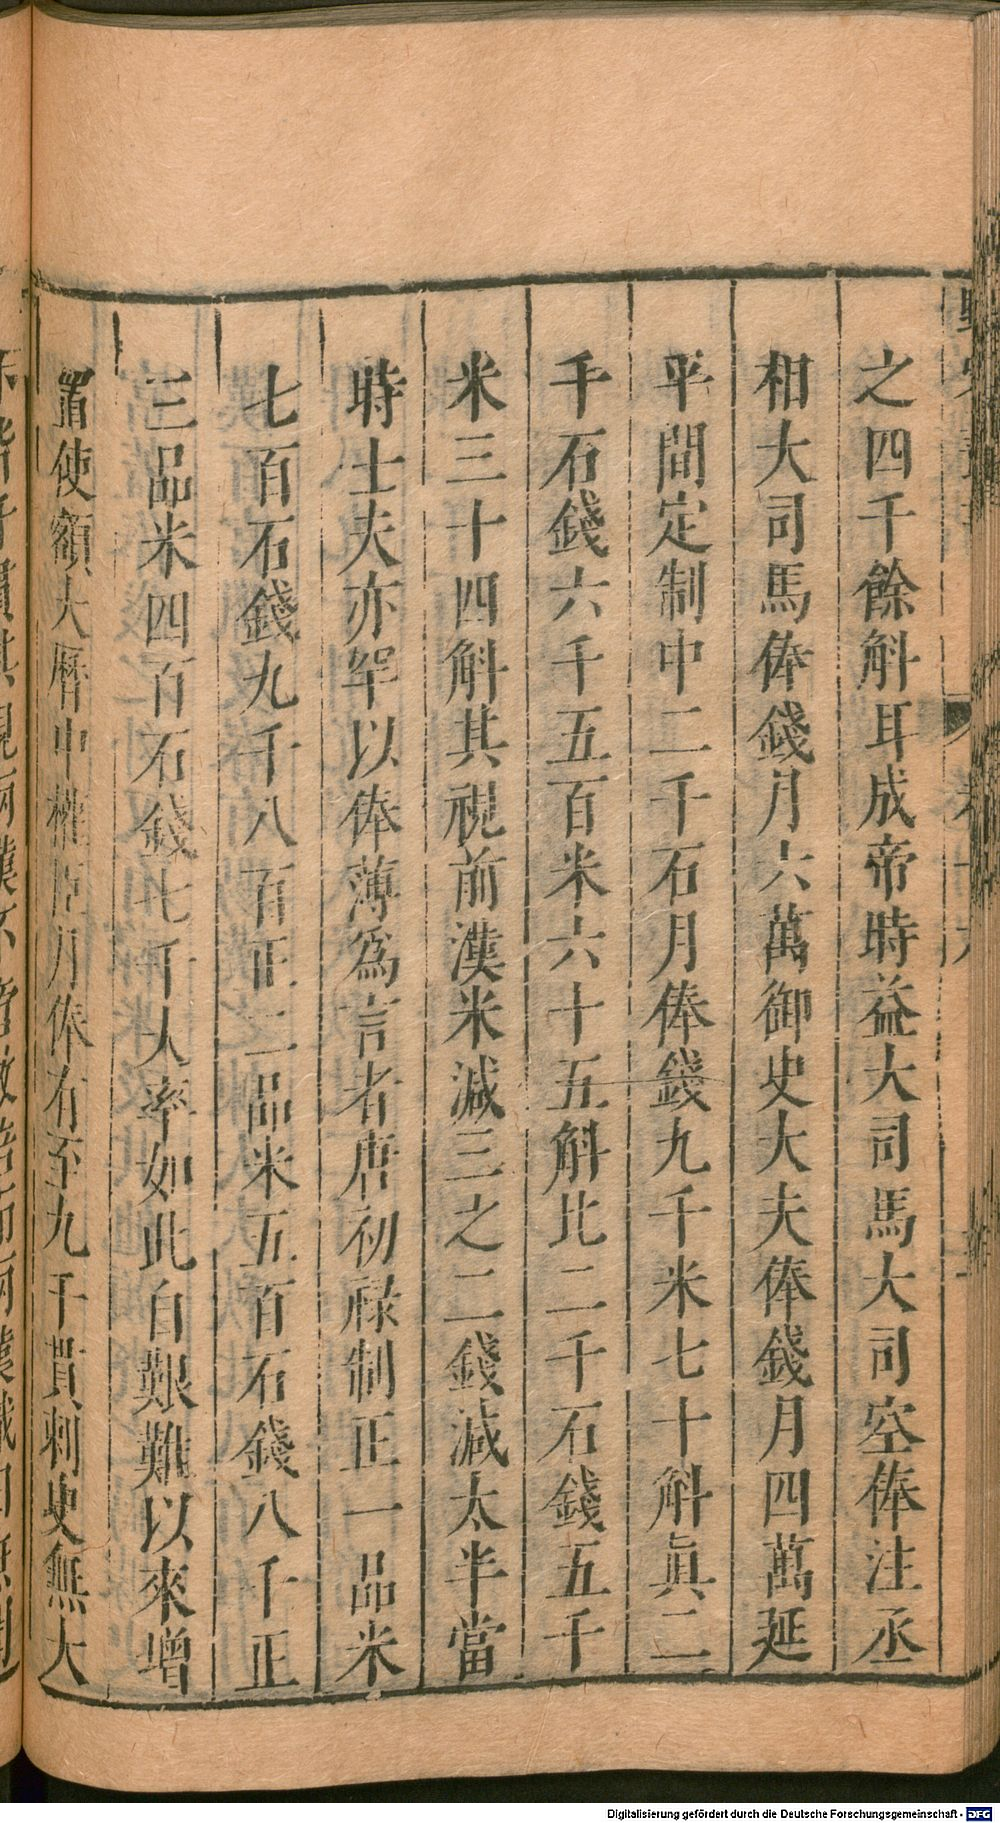 之四千餘斛耳成帝時益大司馬大司空俸注丞
相大司馬俸錢月六萬御史大夫俸錢月四萬延
平間定制中二千石月俸錢九千米七十斛眞二
千石錢六千五百米六十五斛比二千石錢五千
米三十四斛其視前漢米減三之二錢減太半當
時士夫亦罕以俸薄爲言者唐初祿制正一品米
七百石錢九千八百正二品米五百石錢八千正
三品米四百石錢七千大率如此自艱難以來增
置使額大曆中權臣月俸有至九千貫刺史無大
Digitalisierung gefördert durch die Deutsche Forschungsgemeinschaft - DFG